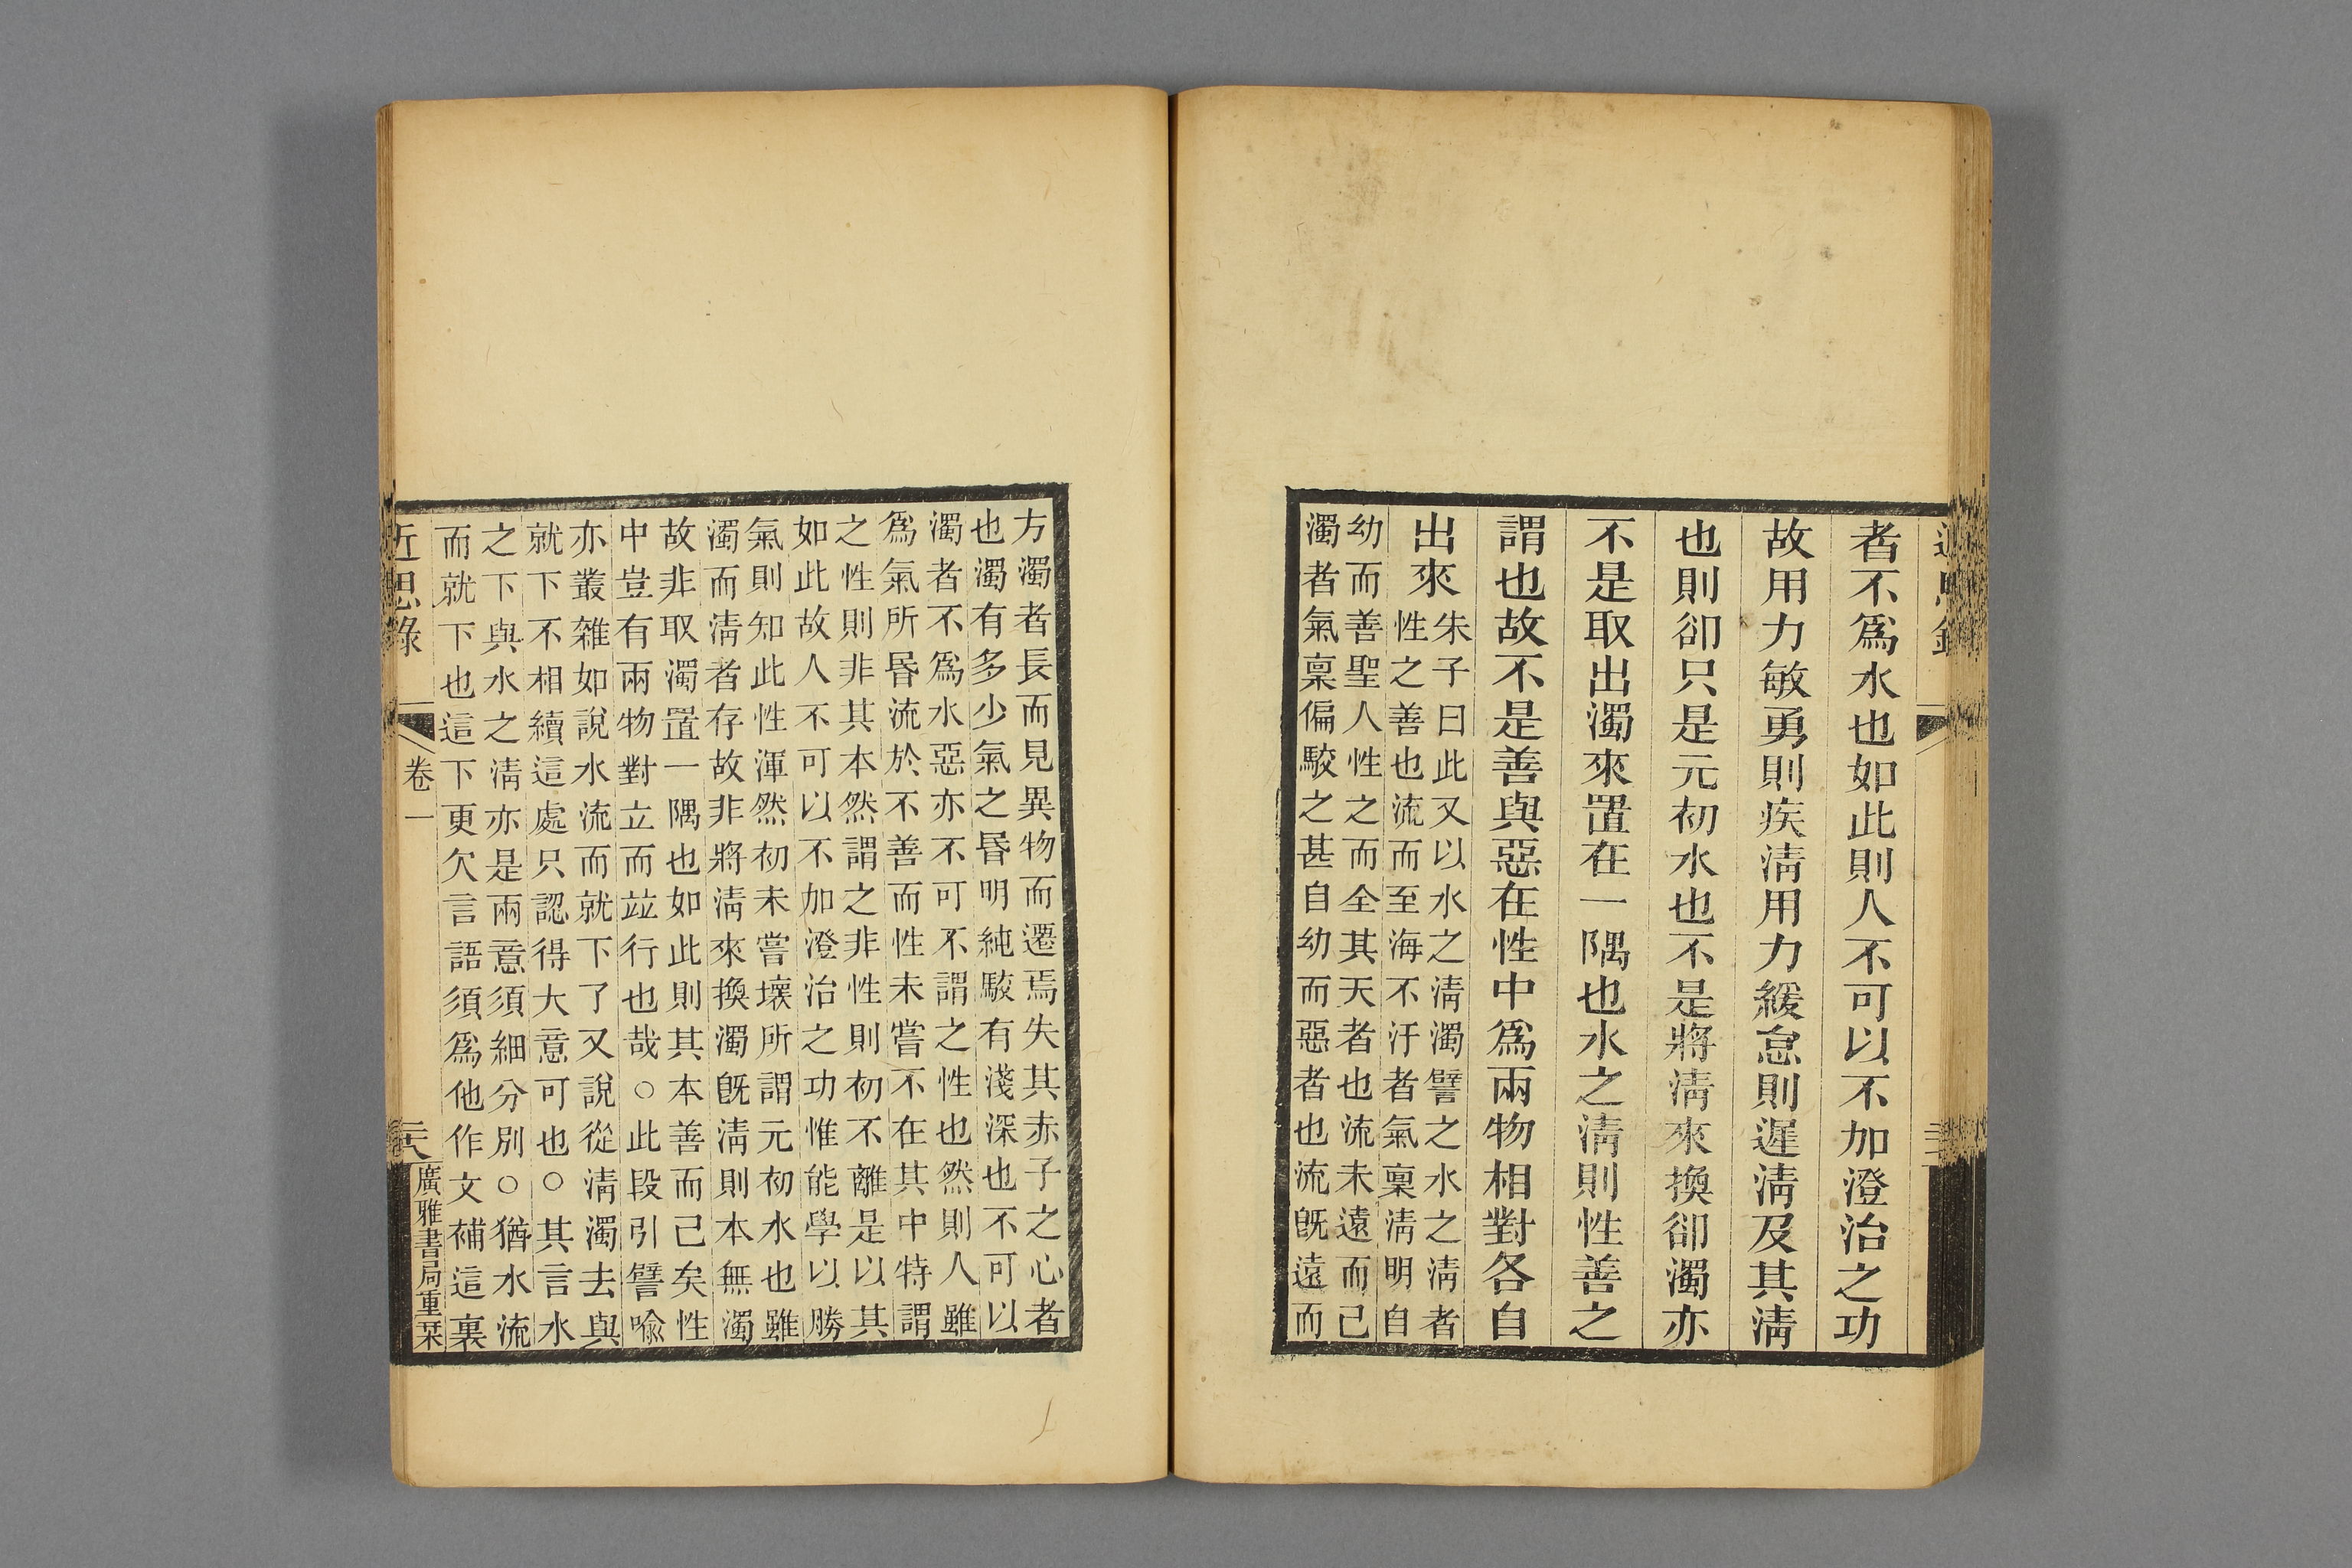 者不爲水也如此則人不可以不加澄治之功
故用力敏勇則疾淸用力緩怠則遲淸及其淸
也則卻只是元初水也不是將淸來換卻濁亦
不是取出濁來置在一隅也水之淸則性善之
謂也故不是善與惡在性中爲兩物相對各自
出來
朱子曰此又以水之淸濁譬之水之淸者
性之善也流而至海不汙者氣稟淸明自
幼而善聖人性之而全其天者也流未遠而已
濁者氣稟偏駮之甚自幼而惡者也流旣遠而
方濁者長而見異物而遷焉失其赤子之心者
也濁有多少氣之昬明純駮有淺深也不可以
濁者不爲水惡亦不可不謂之性也然則人雖
爲氣所昬流於不善而性未嘗不在其中特謂
之性則非其本然謂之非性則初不離是以其
如此故人不可以不加澄治之功惟能學以勝
氣則知此性渾然初未嘗壞所謂元初水也雖
濁而淸者存故非將淸來換濁旣淸則本無濁
故非取濁置一隅也如此則其本善而已矣性
中豈有兩物對立而竝行也哉○此段引譬喩
亦叢雜如說水流而就下了又說從淸濁去與
就下不相續這處只認得大意可也○其言水
之下與水之淸亦是兩意須細分別○猶水流
而就下也這下更欠言語須爲他作文補這裏
近思錄
卷一
廣雅書局重栞